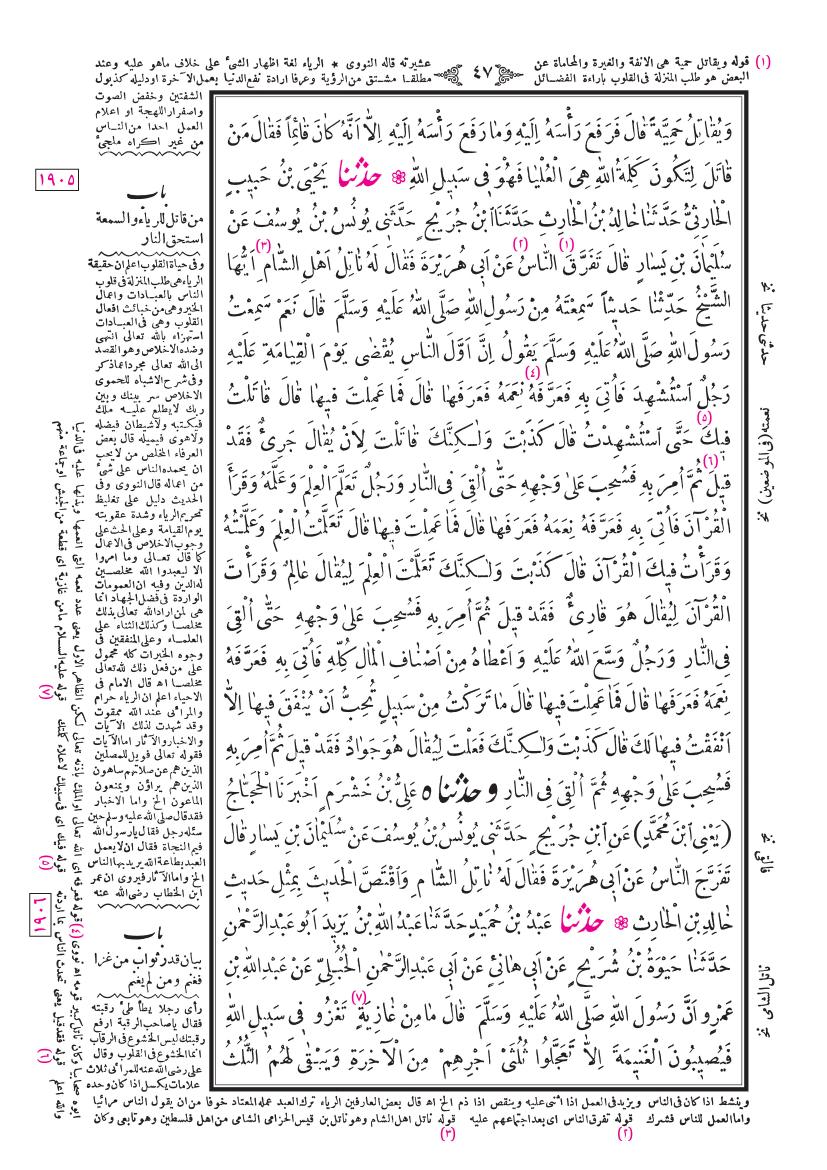 (١) قوله ويقاتل حمية هى الانفة والغيرة والمحاماة عن
٤٧
عشيرته قاله النووى * الرياء لغة اظهار الشئ على خلاف ماهو عليه وعند
البعض هو طلب المنزلة فى القلوب باراءة الفضائل
مطلقا مشتق من الرؤية وعرفا ارادة نفع الدنيا بعمل الآخرة اودليله كذبول
وَيُقَاتِلُ حَمِيَّةً قَالَ فَرَفَعَ رَأْسَهُ اِلَيْهِ وَمَا رَفَعَ رَأْسَهُ اِلَيْهِ اِلاَّ اَنَّهُ كَانَ قَائِمًا فَقَالَ مَنْ
قَاتَلَ لِتَكُونَ كَلِمَةُ اللهِ هِىَ الْعُلْيَا فَهُوَ فِى سَبِيلِ اللهِ ❁ حدثنا يَحْيَى بْنُ حَبِيبٍ
الْحَارِثِىُّ حَدَّثَنَا خَالِدُ بْنُ الْحَارِثِ حَدَّثَنَا ابْنُ جُرَيْجٍ حَدَّثَنِى يُونُسُ بْنُ يُوسُفَ عَنْ
سُلَيْمَانَ بْنِ يَسَارٍ قَالَ تَفَرَّقَ (١) النَّاسُ (٢) عَنْ اَبِى هُرَيْرَةَ فَقَالَ لَهُ نَاتِلُ اَهْلِ الشَّامِ (٣) اَيُّهَا
الشَّيْخُ حَدِّثْنَا حَدِيثًا سَمِعْتَهُ مِنْ رَسُولِ اللهِ صَلَّى اللهُ عَلَيْهِ وَسَلَّمَ قَالَ نَعَمْ سَمِعْتُ
رَسُولَ اللهِ صَلَّى اللهُ عَلَيْهِ وَسَلَّمَ يَقُولُ اِنَّ اَوَّلَ النَّاسِ يُقْضَى يَوْمَ الْقِيَامَةِ عَلَيْهِ
رَجُلٌ اسْتُشْهِدَ فَاُتِىَ بِهِ فَعَرَّفَهُ (٤) نِعَمَهُ فَعَرَفَهَا قَالَ فَمَا عَمِلْتَ فِيهَا قَالَ قَاتَلْتُ
فِيكَ (٥) حَتَّى اسْتُشْهِدْتُ قَالَ كَذَبْتَ وَلٰكِنَّكَ قَاتَلْتَ لِاَنْ يُقَالَ جَرِىءٌ فَقَدْ
قِيلَ (٦) ثُمَّ اُمِرَ بِهِ فَسُحِبَ عَلَى وَجْهِهِ حَتَّى اُلْقِىَ فِى النَّارِ وَرَجُلٌ تَعَلَّمَ الْعِلْمَ وَعَلَّمَهُ وَقَرَأَ
الْقُرْآنَ فَاُتِىَ بِهِ فَعَرَّفَهُ نِعَمَهُ فَعَرَفَهَا قَالَ فَمَا عَمِلْتَ فِيهَا قَالَ تَعَلَّمْتُ الْعِلْمَ وَعَلَّمْتُهُ
وَقَرَأْتُ فِيكَ الْقُرْآنَ قَالَ كَذَبْتَ وَلٰكِنَّكَ تَعَلَّمْتَ الْعِلْمَ لِيُقَالَ عَالِمٌ وَقَرَأْتَ
الْقُرْآنَ لِيُقَالَ هُوَ قَارِئٌ فَقَدْ قِيلَ ثُمَّ اُمِرَ بِهِ فَسُحِبَ عَلَى وَجْهِهِ حَتَّى اُلْقِىَ
فِى النَّارِ وَرَجُلٌ وَسَّعَ اللهُ عَلَيْهِ وَاَعْطَاهُ مِنْ اَصْنَافِ الْمَالِ كُلِّهِ فَاُتِىَ بِهِ فَعَرَّفَهُ
نِعَمَهُ فَعَرَفَهَا قَالَ فَمَا عَمِلْتَ فِيهَا قَالَ مَا تَرَكْتُ مِنْ سَبِيلٍ تُحِبُّ اَنْ يُنْفَقَ فِيهَا اِلاَّ
اَنْفَقْتُ فِيهَا لَكَ قَالَ كَذَبْتَ وَلٰكِنَّكَ فَعَلْتَ لِيُقَالَ هُوَ جَوَادٌ فَقَدْ قِيلَ ثُمَّ اُمِرَ بِهِ
فَسُحِبَ عَلَى وَجْهِهِ ثُمَّ اُلْقِىَ فِى النَّارِ وحدثناه عَلِىُّ بْنُ خَشْرَمٍ اَخْبَرَنَا الْحَجَّاجُ
(يَعْنِى ابْنَ مُحَمَّدٍ) عَنِ ابْنِ جُرَيْجٍ حَدَّثَنِى يُونُسُ بْنُ يُوسُفَ عَنْ سُلَيْمَانَ بْنِ يَسَارٍ قَالَ
تَفَرَّجَ النَّاسُ عَنْ اَبِى هُرَيْرَةَ فَقَالَ لَهُ نَاتِلُ الشَّامِ وَاقْتَصَّ الْحَدِيثَ بِمِثْلِ حَدِيثِ
خَالِدِ بْنِ الْحَارِثِ ❁ حدثنا عَبْدُ بْنُ حُمَيْدٍ حَدَّثَنَا عَبْدُ اللهِ بْنُ يَزِيدَ اَبُو عَبْدِ الرَّحْمٰنِ
حَدَّثَنَا حَيْوَةُ بْنُ شُرَيْحٍ عَنْ اَبِى هَانِئٍ عَنْ اَبِى عَبْدِ الرَّحْمٰنِ الْحُبُلِىِّ عَنْ عَبْدِ اللهِ بْنِ
عَمْرٍو اَنَّ رَسُولَ اللهِ صَلَّى اللهُ عَلَيْهِ وَسَلَّمَ قَالَ مَا مِنْ غَازِيَةٍ (٧) تَغْزُو فِى سَبِيلِ اللهِ
فَيُصِيبُونَ الْغَنِيمَةَ اِلاَّ تَعَجَّلُوا ثُلُثَىْ اَجْرِهِمْ مِنَ الْآخِرَةِ وَيَبْقَى لَهُمُ الثُّلُثُ
الشفتين وخفض الصوت
واصفرار اللهجة او اعلام
العمل احدا من الناس
من غير اكراه ملجئ
١٩٠٥
باب
من قاتل للرياء والسمعة
استحق النار
وفى حياة القلوب اعلم ان حقيقة
الرياء هى طلب المنزلة فى قلوب
الناس بالعبادات واعمال
الخير وهى من خبائث افعال
القلوب وهى فى العبادات
استهزاء بالله تعالى انتهى
وضده الاخلاص وهو القصد
الى الله تعالى مجردا عما ذكر
وفى شرح الاشباه للحموى
الاخلاص سر بينك وبين
ربك لا يطلع عليه ملك
فيكتبه ولا شيطان فيضله
ولا هوى فيميله قال بعض
العرفاء المخلص من لا يحب
ان يحمده الناس على شئ
من اعماله قال النووى وفى
الحديث دليل على تغليظ
تحريم الرياء وشدة عقوبته
يوم القيامة وعلى الحث على
وجوب الاخلاص فى الاعمال
كما قال تعالى وما امروا
الا ليعبدوا الله مخلصين
له الدين وفيه ان العمومات
الواردة فى فضل الجهاد انما
هى لمن اراد الله تعالى بذلك
مخلصا وكذلك الثناء على
العلماء وعلى المنفقين فى
وجوه الخيرات كله محمول
على من فعل ذلك لله تعالى
مخلصا اه قال الامام فى
الاحياء اعلم ان الرياء حرام
والمرائى عند الله ممقوت
وقد شهدت لذلك الآيات
والاخبار والآثار اما الآيات
فقوله تعالى فويل للمصلين
الذين هم عن صلاتهم ساهون
الذين هم يراؤن ويمنعون
الماعون الخ واما الاخبار
فقد قال صلى الله عليه وسلم حين
سئله رجل فقال يا رسول الله
فيم النجاة فقال ان لا يعمل
العبد بطاعة الله يريد بها الناس
الخ واما الآثار فيروى ان عمر
ابن الخطاب رضى الله عنه
١٩٠٦
باب
بيان قدر ثواب من غزا
فغنم ومن لم يغنم
رأى رجلا يطأطئ رقبته
فقال يا صاحب الرقبة ارفع
رقبتك ليس الخشوع فى الرقاب
انما الخشوع فى القلوب وقال
على رضى الله عنه للمرائى ثلاث
علامات يكسل اذا كان وحده
وينشط اذا كان فى الناس ويزيد فى العمل اذا اثنى عليه وينقص اذا ذم الخ اه قال بعض العارفين الرياء ترك العبد عمله المعتاد خوفا من ان يقول الناس مرائيا
واما العمل للناس فشرك (٢) قوله تفرق الناس اى بعد اجتماعهم عليه (٣) قوله ناتل اهل الشام وهو ناتل بن قيس الحزامى الشامى من اهل فلسطين وهو تابعى وكان
ابوه صحابيا وكان ناتل كبير قومه اه نووى (٤) قوله فعرفه اى الله تعالى
(٥) قوله فيك اى فى سبيلك لاعلاء كلمتك
(٦) قوله فقد قيل يعنى تحدث الناس بما اردته
(٧) قوله عليه السلام ما من غازية اى قطعة من الجيش اوجماعة منهم
والله اعلم
حدثنى حديثا نخ
نعمته (فى الموضعين) نخ
فالقى نخ
ناتل الشامى نخ